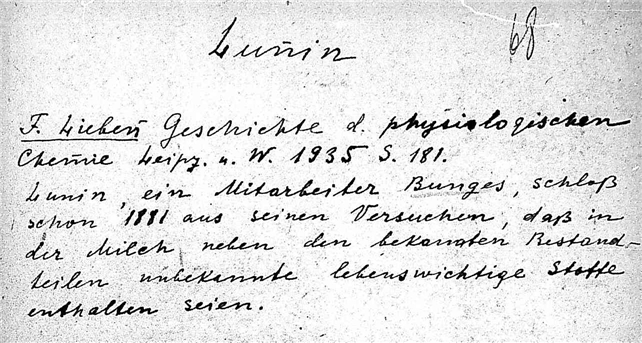 Lunin
68
F. Lieben Geschichte d. physiologischen
Chemie Leipz. u. W. 1935 S. 181.
Lunin, ein Mitarbeiter Bunges, schloß
schon 1881 aus seinen Versuchen, daß in
der Milch neben den bekannten Bestand-
teilen unbekannte lebenswichtige Stoffe
enthalten seien.